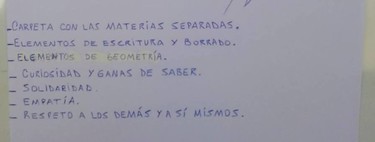 - CARPETA CON LAS MATERIAS SEPARADAS.
- ELEMENTOS DE ESCRITURA Y BORRADO.
- ELEMENTOS DE GEOMETRÍA.
- CURIOSIDAD Y GANAS DE SABER.
- SOLIDARIDAD.
- EMPATÍA.
- RESPETO A LOS DEMÁS Y A SÍ MISMOS.